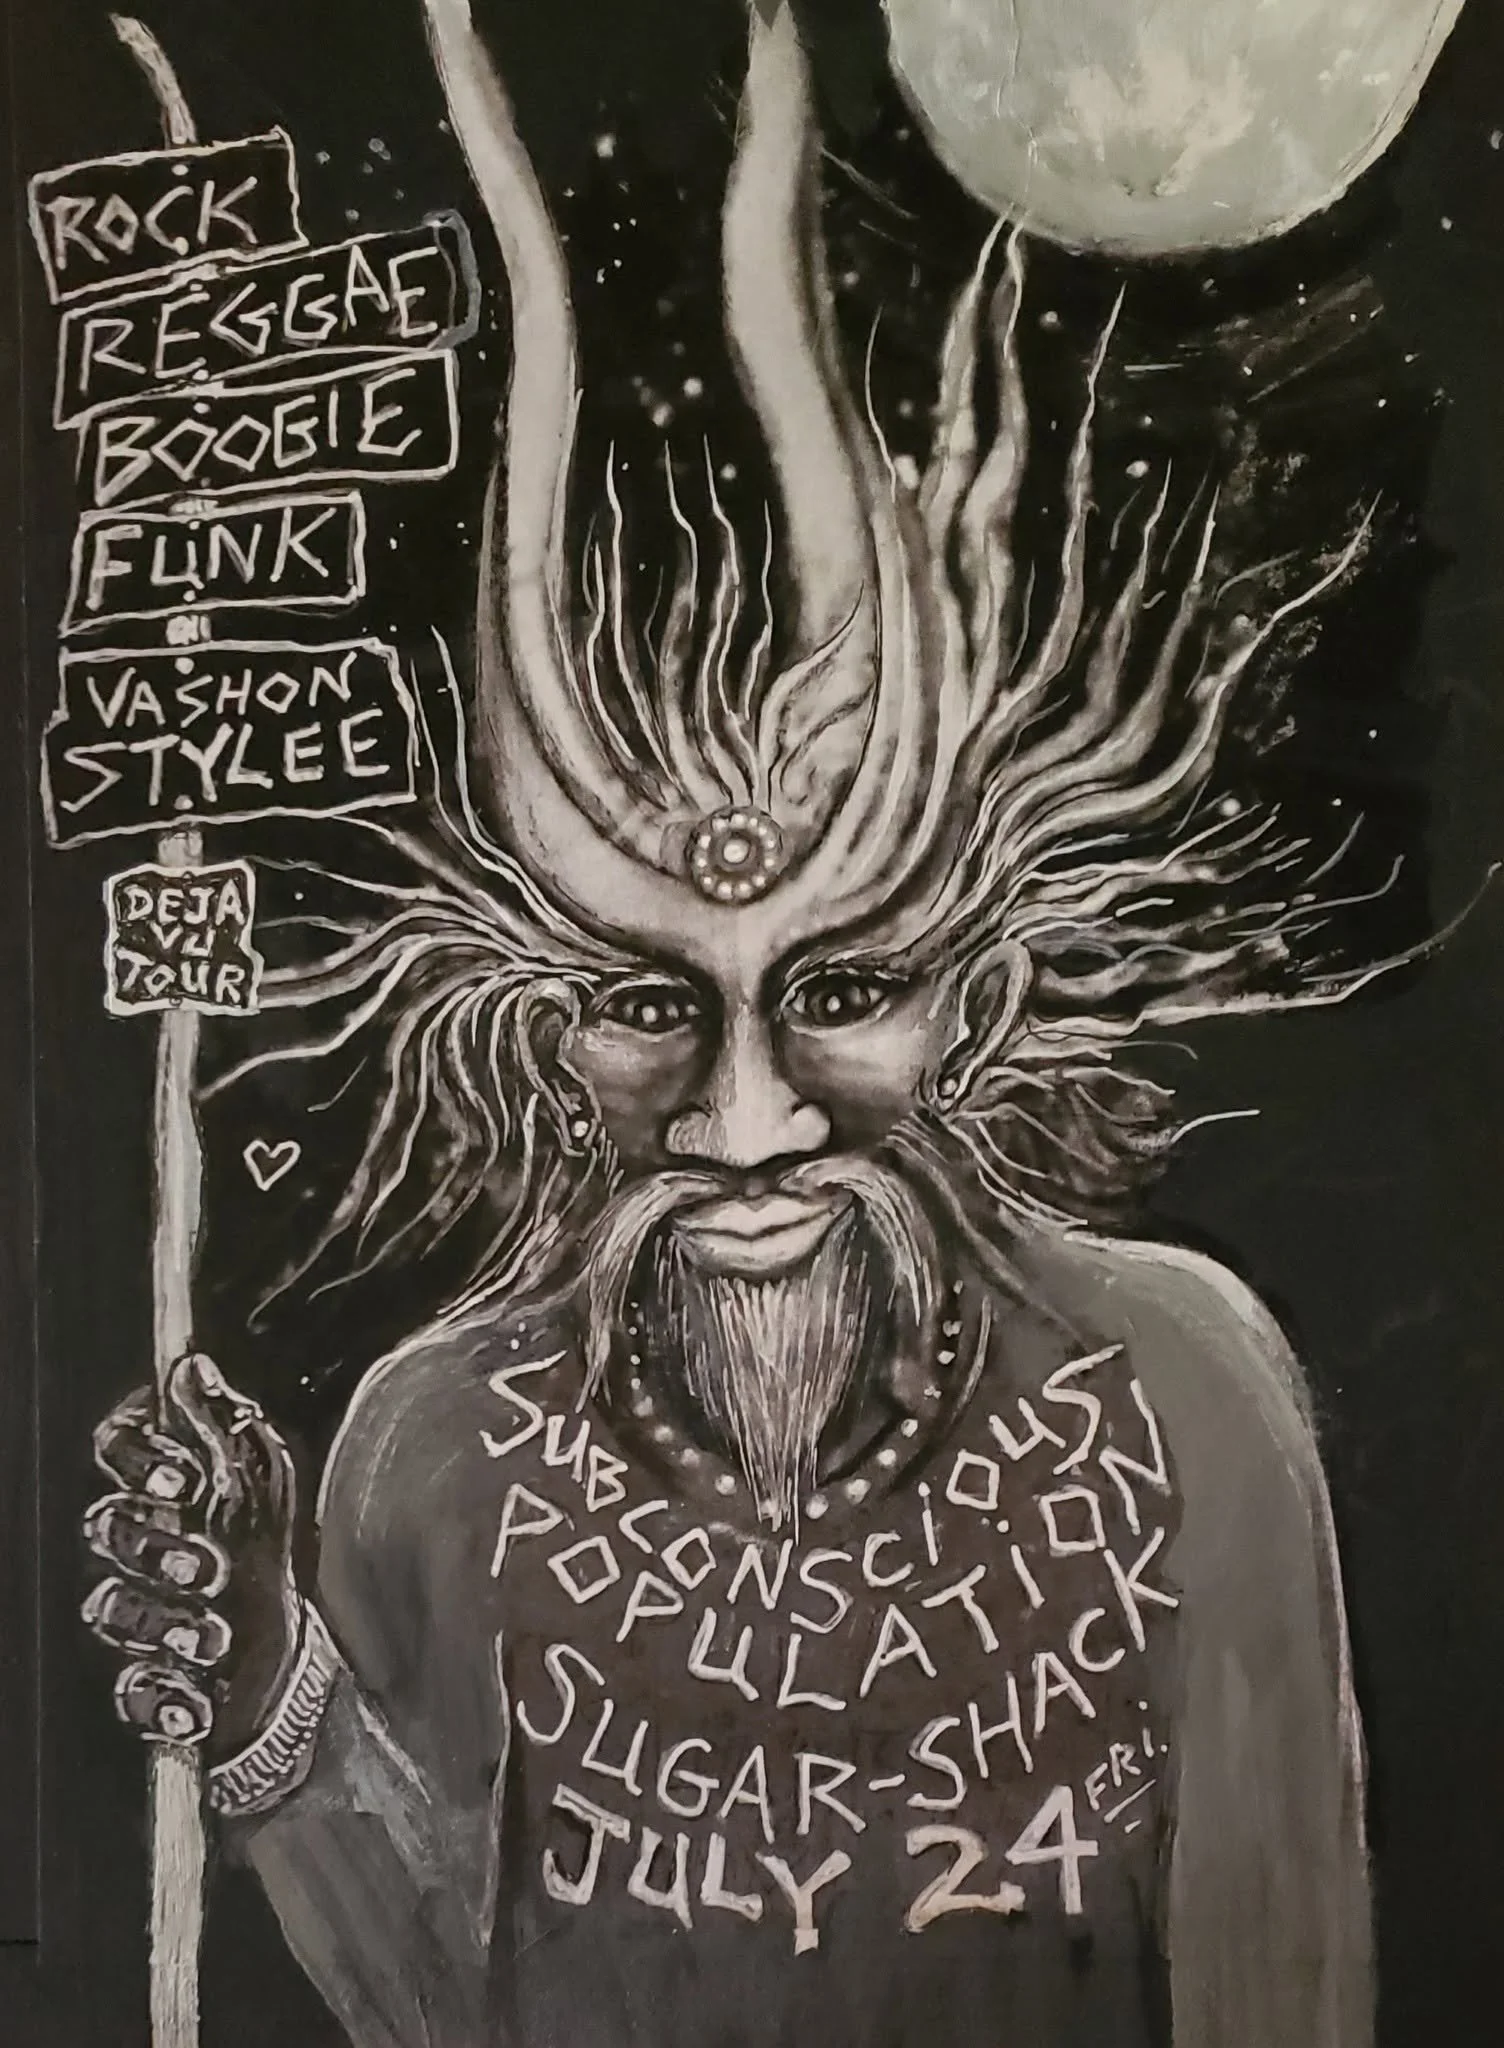 ROCK
REGGAE
BOOGIE
FUNK
VASHON
STYLEE
DEJA
VU
TOUR
SUBCONSCIOUS
POPULATION
SUGAR-SHACK
JULY 24 FRI.